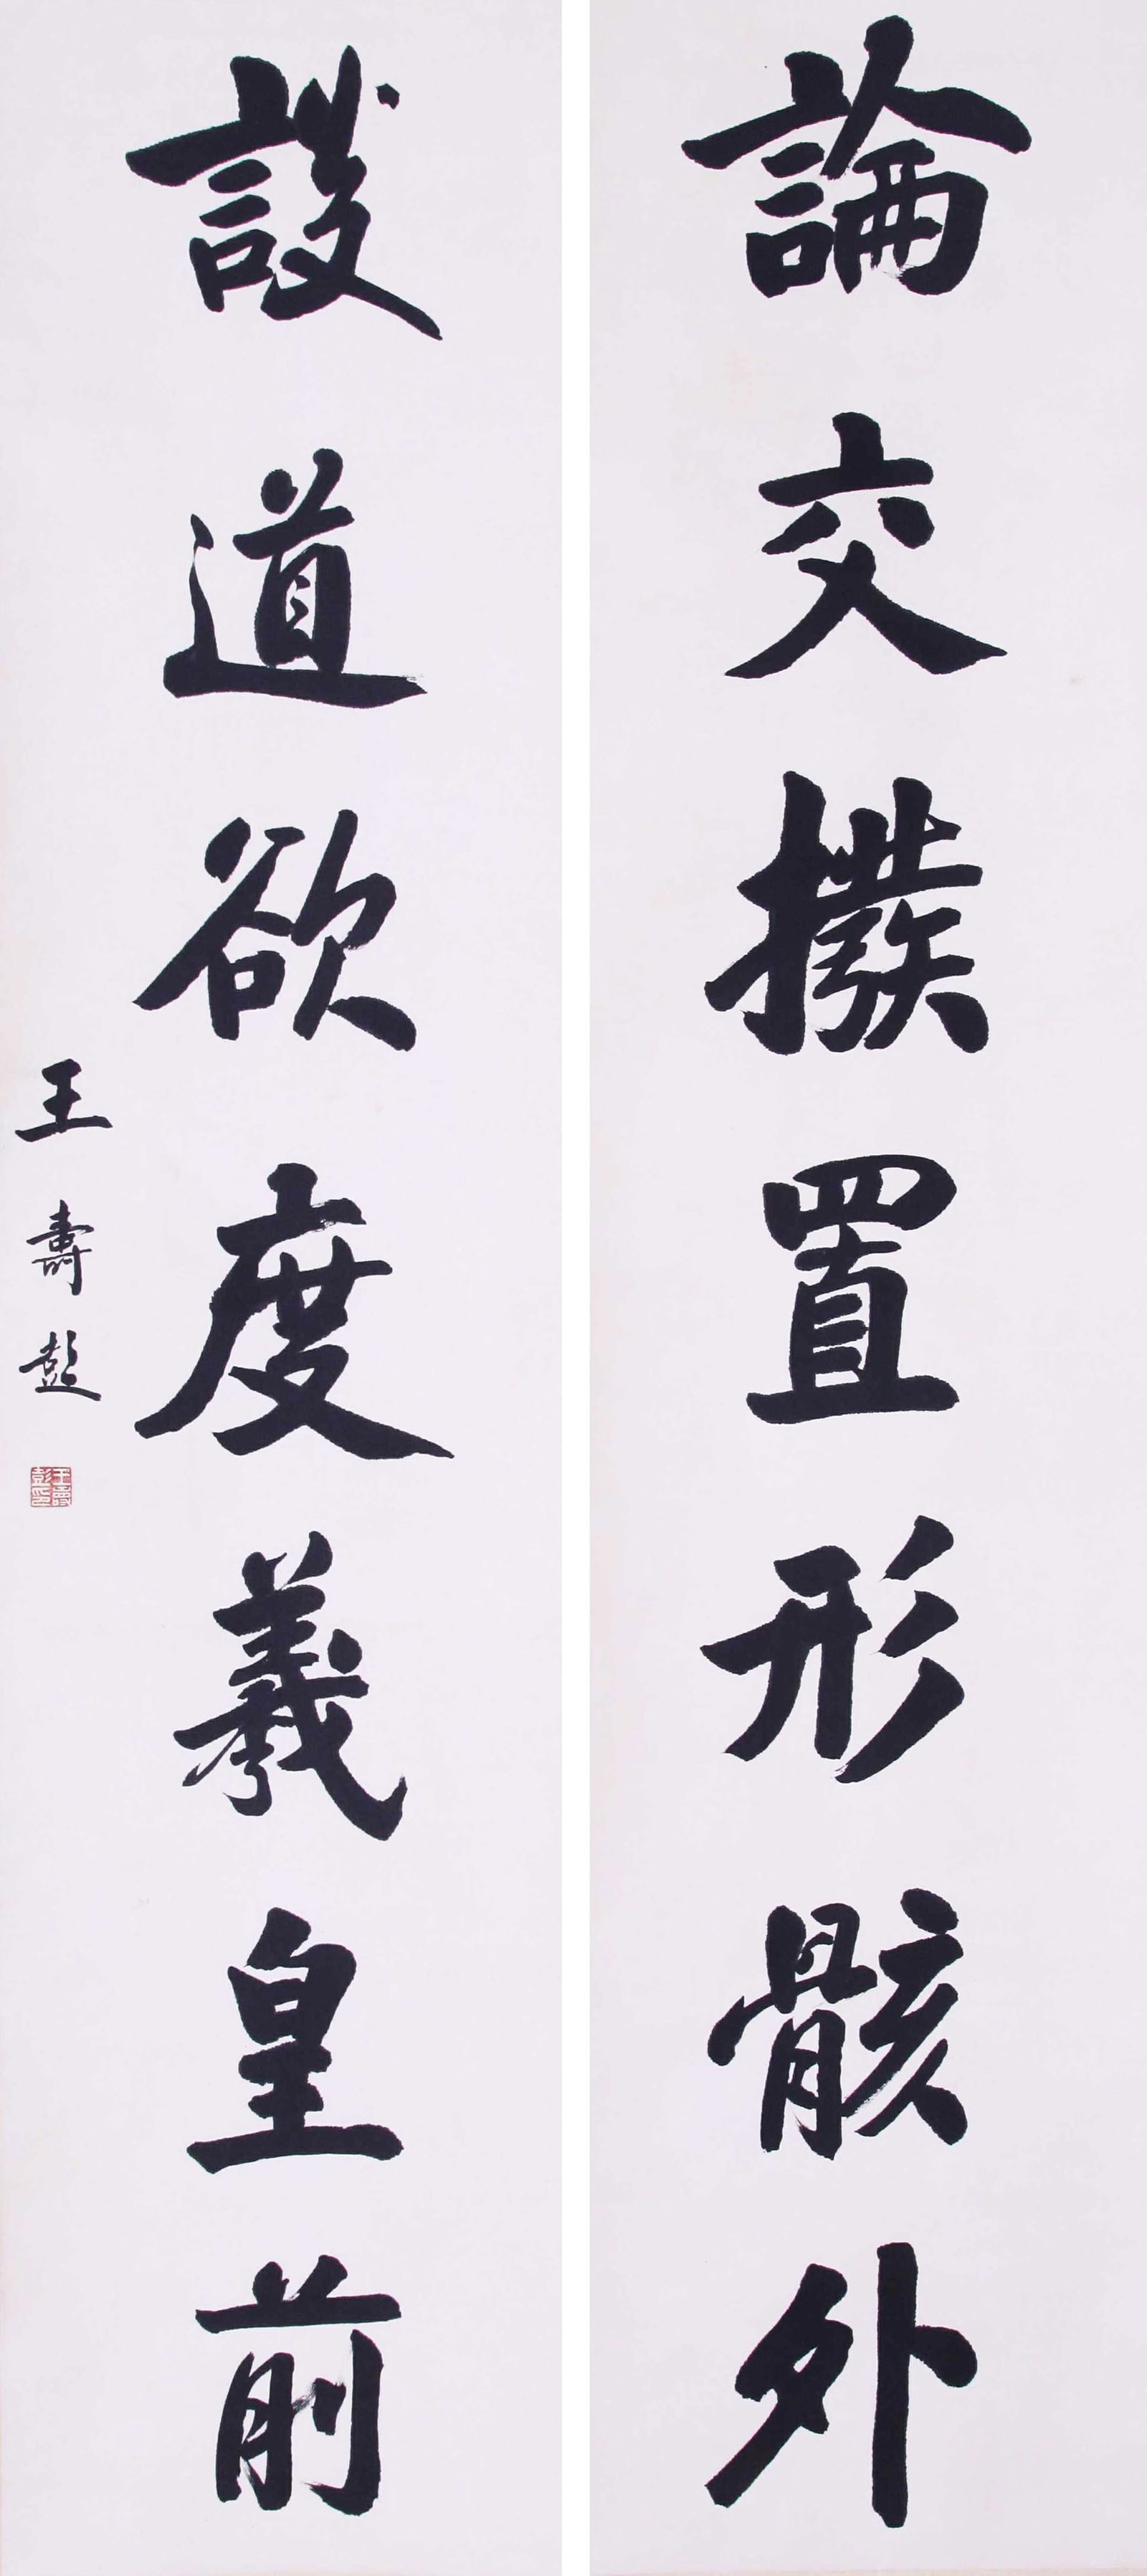 論交撥置形骸外
談道欲度羲皇前
王壽彭
王壽
彭印